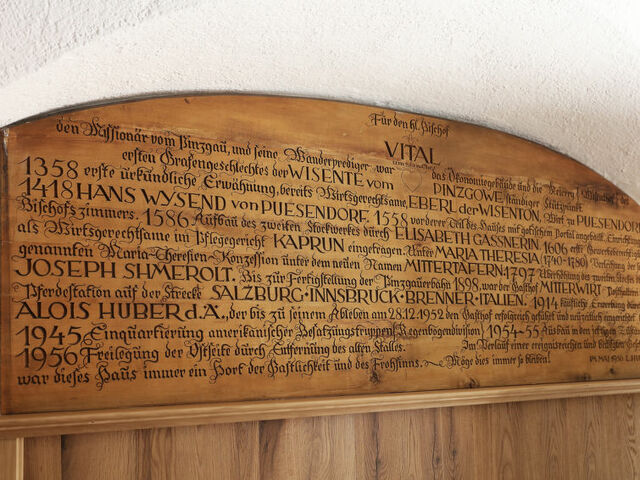 Für den hl. Bischof
VITAL
den Missionär vom Pinzgau, und seine Wanderprediger war das Ökonomiegebäude und die
ersten Grafengeschlechtes der WISENTE vom PINZGOWE ständiger Stützpunkt.
1358 erste urkundliche Erwähnung, bereits Wirtsgerechtsame, EBERL der WISENTON, Wirt zu PUESENDORF
1418 HANS WYSEND von PUESENDORF. 1558 vorderer Teil des Hauses mit gotischem Portal
Bischofszimmers. 1586 Aufbau des zweiten Stockwerkes durch ELISABETH GASSNERIN. 1606 erste
als Wirtsgerechtsame im Pfleggericht KAPRUN eingetragen. Unter MARIA THERESIA (1740-1780)
genannten Maria-Theresien-Konzession unter dem neuen Namen MITTERTAFERN. 1797
JOSEPH SHMEROLT. Bis zur Fertigstellung der Pinzgauerbahn 1898, war der Gasthof MITTERWIRT
Pferdestation auf der Strecke SALZBURG·INNSBRUCK·BRENNER·ITALIEN. 1914 käufliche Erwerbung
ALOIS HUBER d. Ä., der bis zu seinem Ableben am 28.12.1952 den Gasthof erfolgreich geführt und
1945 Einquartierung amerikanischer Besatzungstruppen (Regenbogendivision) 1954-55 Ausbau in den
1956 Freilegung der Ostseite durch Entfernung des alten Stalles. Im Verlauf einer ereignisreichen und
war dieses Haus immer ein Hort der Gastlichkeit und des Frohsinns. Möge dies immer so bleiben!